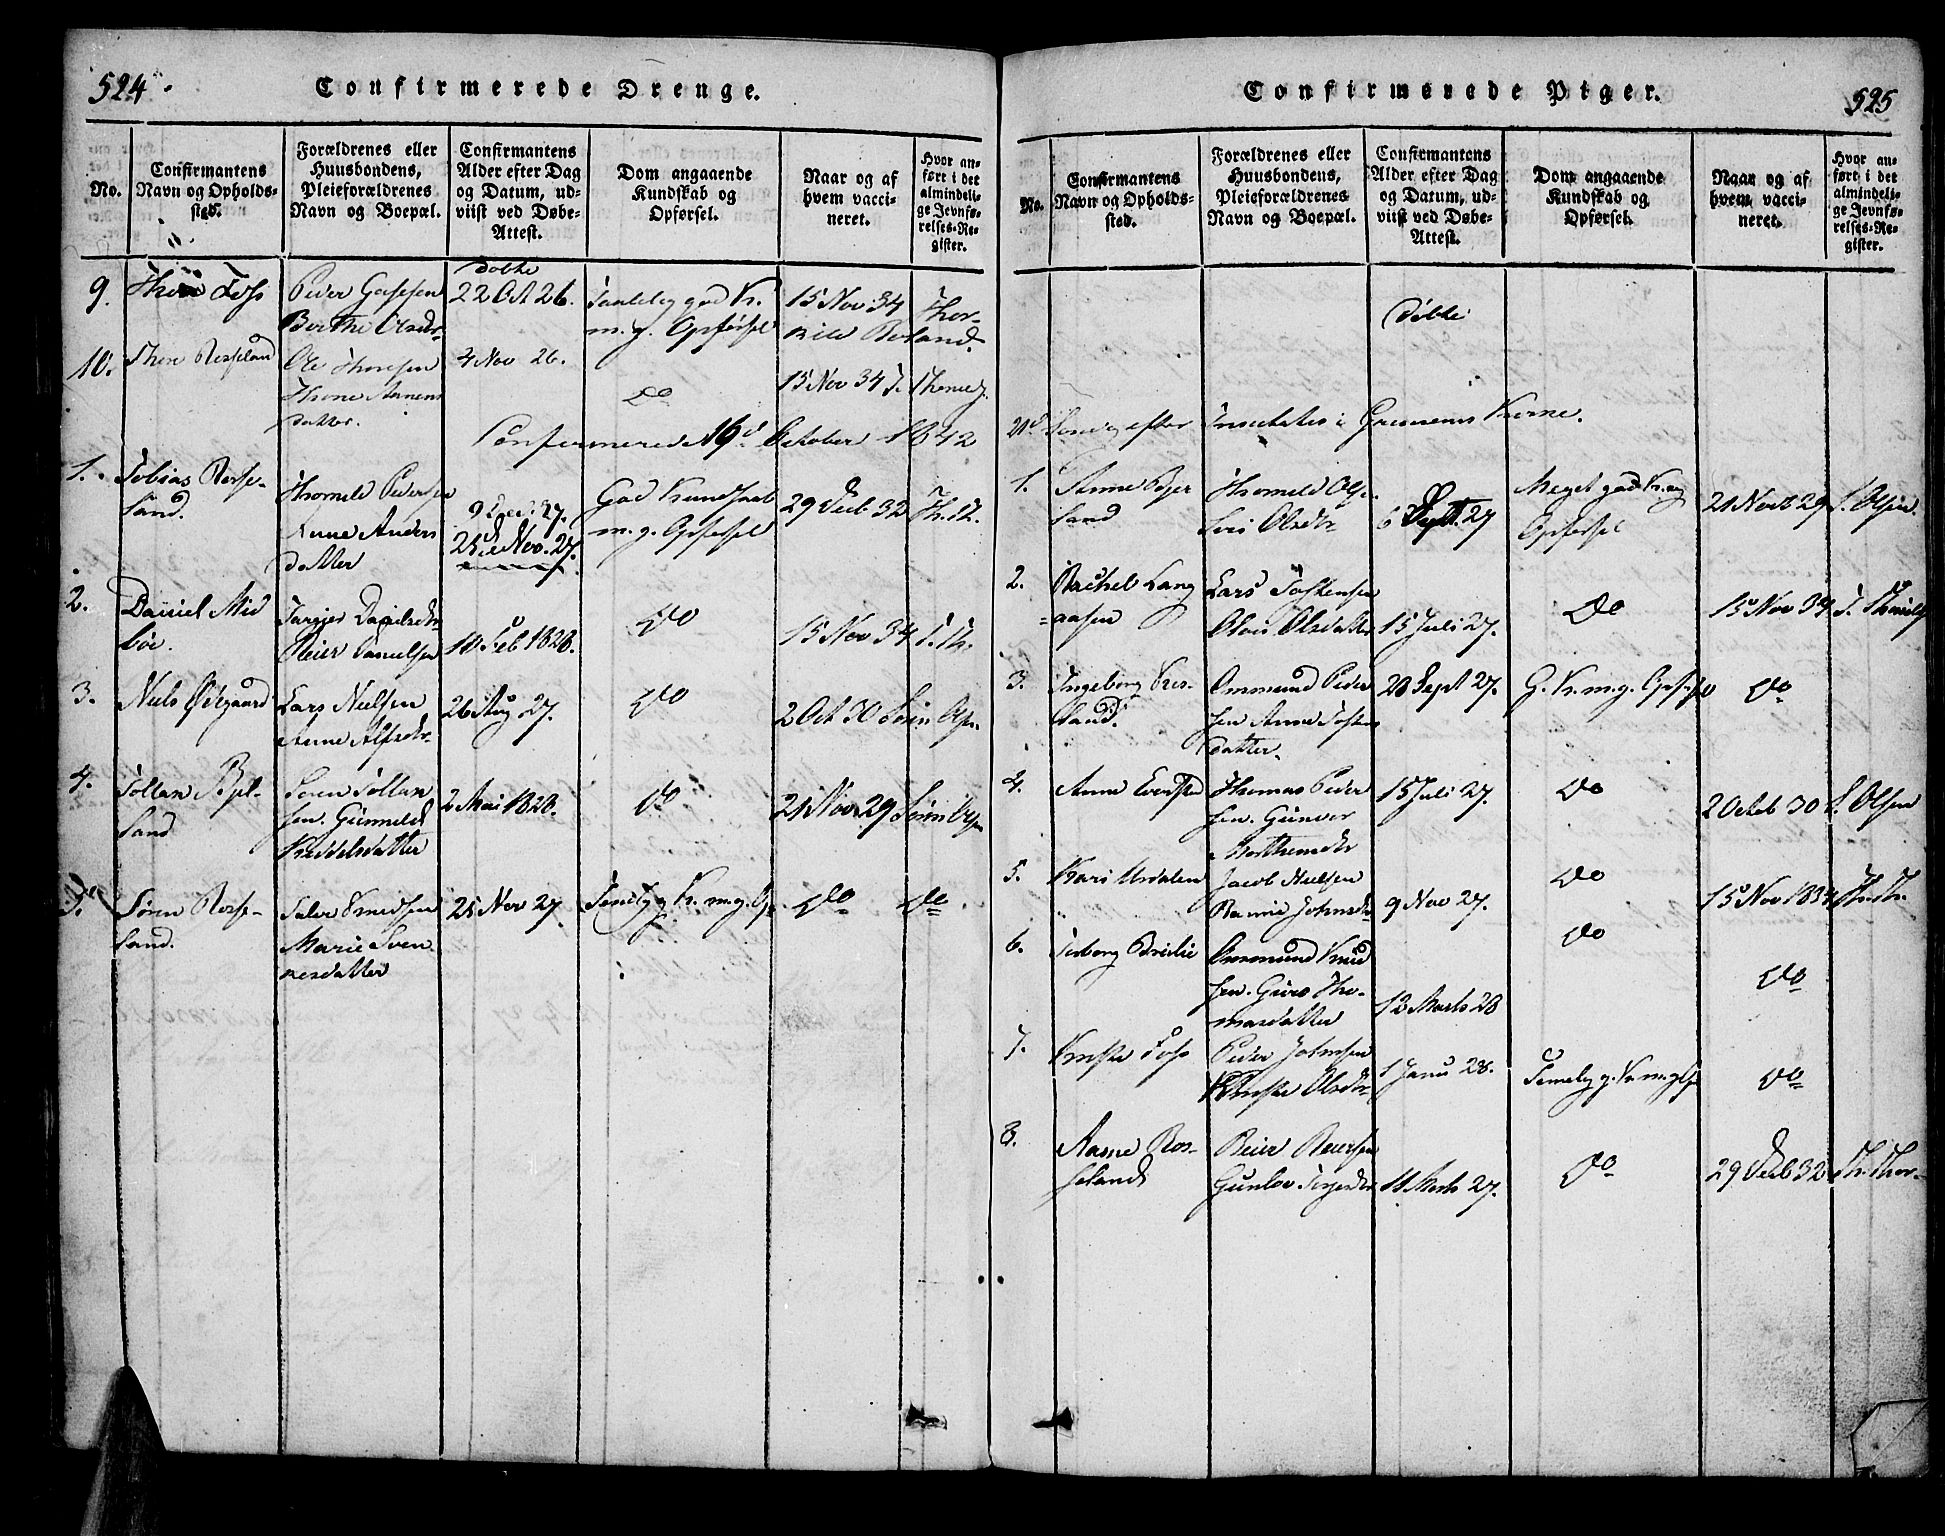 524.
Confirmerede Drenge.
No.
Confirmantens
Navn og Opholds-
sted.
Forældrenes eller
Huusbondens,
Pleieforældrenes
Navn og Boepæl.
Confirmantens
Alder efter Dag
og Datum, ud-
viist ved Døbe-
Attest.
Dom angaaende
Kundskab og
Opførsel.
Naar og af
hvem vacci-
neret.
Hvor an-
ført i det
almindeli-
ge Jevnfø-
relses-Re-
gister.
9.
Peder
Berthe Olsdr
Døbte
22 Oct 26.
Taaleleg god K.
m. g. Opførsel
15 Nov 34 Thor-
kild Roland.
10.
Ole Thorsen
Thone Aanens
datter.
4 Nov 26.
Do
15 Nov 34 T. Thomes.
Confirmerede 16d October 1842
1.
Tobias Rosse-
land.
Thomeld Pedersen
Anne Anders
datter
9 Dec: 27.
25de Nov. 27.
God Kundskab
m. g. Opførsel
29 Deb 32 Th. Th.
2.
Daniel Mid
bøe.
Reier Danielsen
10 Feb 1828.
Do
15 Nov 34 T. Th.
3.
Niels Ødegaard
Lars Nielsen
Anne Alfsdtr
26 Aug. 27.
Do
2 Oct 30 Sørin Olsn.
4.
Tollan
land
Søren Tollan
sen. Gunnild
Kieddelsdatter
2 Mai 1828.
Do
21 Nov 29 Sørin Olsn
5.
Søren Rosse-
land.
Marie Sven
kesdatter
25 Nov 27.
Temelig K. m. g. Op
Do
Do
525
Confirmerede Piger.
No.
Confirmantens
Navn og Opholds-
sted.
Forældrenes eller
Huusbondens,
Pleieforældrenes
Navn og Boepæl.
Confirmantens
Alder efter Dag
og Datum, ud-
viist ved Døbe-
Attest.
Dom angaaende
Kundskab og
Opførsel.
Naar og af
hvem vacci-
neret.
Hvor an-
ført i det
almindeli-
ge Jevnfø-
relses-Re-
gister.
Døbte
21d Søndag efter Trinitatis i Kirke.
1.
Anne
land
Thomeld Ols.
Siri Olsdtr
6 Sept. 27
Meget god K. og
Opførsel
21 Novb 29 S. Olsen.
2.
Rachel Lang
aasen
Lars Tostensen
Olsdatter
15 Juli 27.
Do
15 Nov 34 T. Thomes
3.
Ingeborg
land.
Ommund Peder
sen Anne Tostens
datter.
20 Sept 27.
G. K. m. g. Opførsel
Do
4.
Anne Eversted
Thomas Peder
sen. Gunver
15 Juli 27.
Do
2 Octob 30 S. Olsen
5.
Kari Urdalen
Jacob Nielsen
Johnsdtr
9 Nov 27.
Do
15 Nov 1834 Th. Th.
6.
Ommund Knud
sen. Guro Tho-
masdatter
12 Marts 28
Do
Do
7.
Foss
Peder Johnsen
Olsdtr
1 Janu 28.
Temelig g. K. m. g. Op
Do
8.
Aasne Ros-
seland
Reier Reiersen
Gunlov
11 Marts 27.
Do
29 Deb 32 Th. Thor-